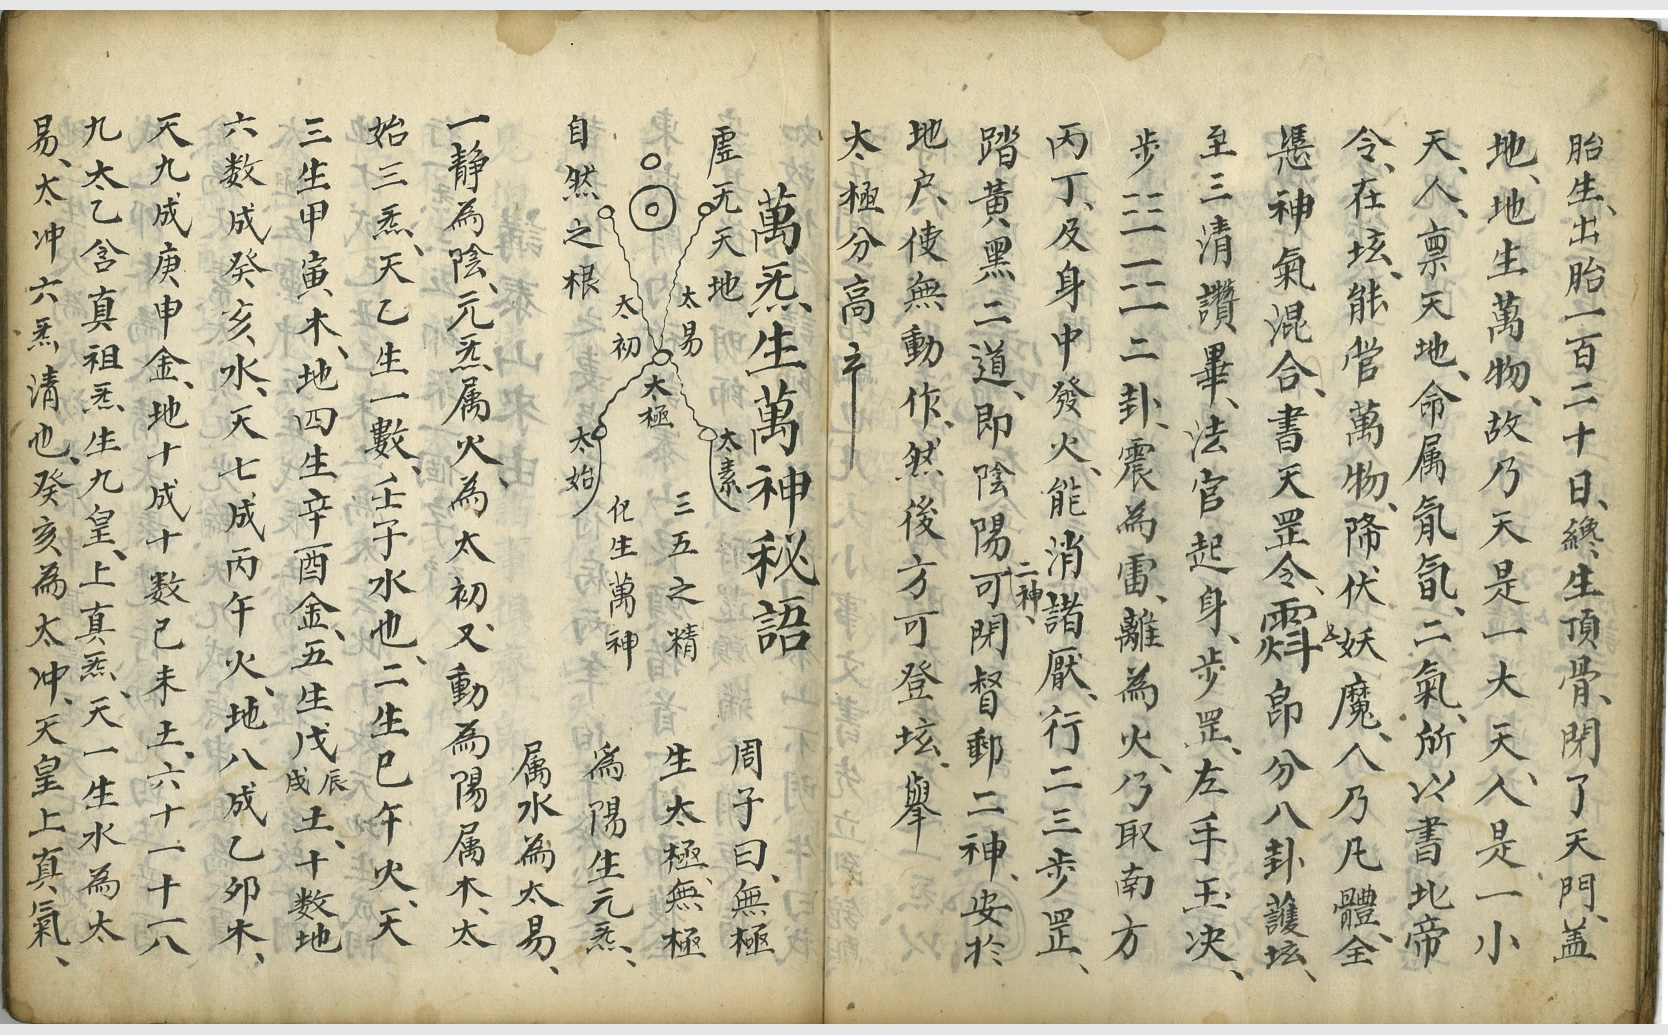 胎生、出胎一百二十日、纔生頂骨、閉了天門、盖
地、地生萬物、故乃天是一大天、人是一小
天、人、禀天地、命属肻氤、二氣、所以書北帝
令、在坛、能管萬物、降伏妖魔、人乃凡體、全
慿神氣混合、書天罡令、卽分八卦護坛、
至三清讚畢、法官起身、步罡、左手玉决、
步二二一二二卦、震為雷、離為火、乃取南方
丙丁、及身中發火、能消諸厭、行二三步罡、
踏黃黑二道、即陰陽可閉督郵二神、安於
二神、
地户、使無動作、然後方可登坛、舉
太極分高
萬炁生萬神秘語
虛无天地
自然之根
太易
太初
太極
太素
太始
三五之精
化生萬神
周子曰、無極
生太極、無極
為陽生元炁、
属水為太易、
一静為陰、元炁属火、為太初、又動為陽属木、太
始三炁、天乙生一數、壬子水也、二生巳午火、天
三生甲寅、木、地四生辛酉金、五生戊辰戌土、十数地
六数成癸亥水、天七成丙午火、地八成乙卯木、
天九成庚申金、地十成十数己未土、六十一十八
九太乙含真祖炁生九皇、上真炁、天一生水為太
易、太冲六炁清也、癸亥為太冲、天皇上真氣、